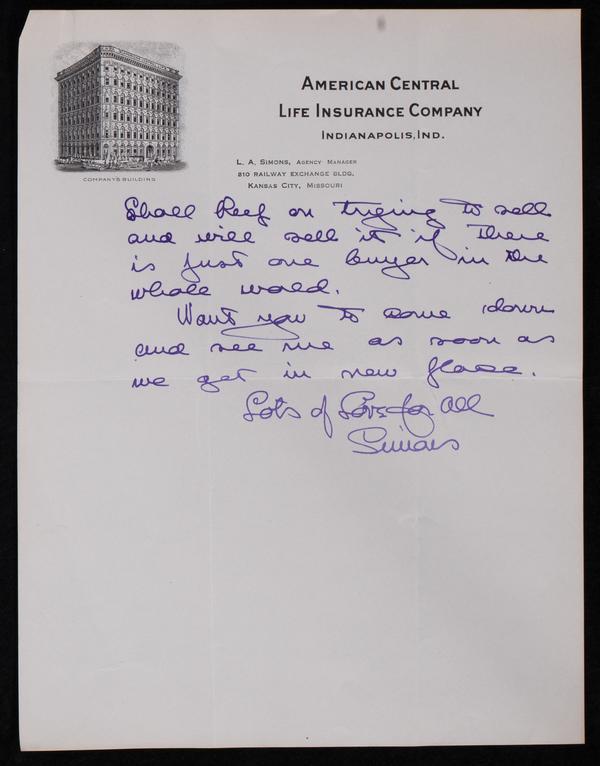 AMERICAN CENTRAL
LIFE INSURANCE COMPANY
INDIANAPOLIS, IND.
L. A. SIMONS, AGENCY MANAGER
810 RAILWAY EXCHANGE BLDG.
KANSAS CITY, MISSOURI
COMPANY'S BUILDING
Shall keep on trying to sell
and will sell it if there
is just one buyer in the
whole world.
Want you to come down
and see me as soon as
we get in new place.
Lots of Love for all
Simons